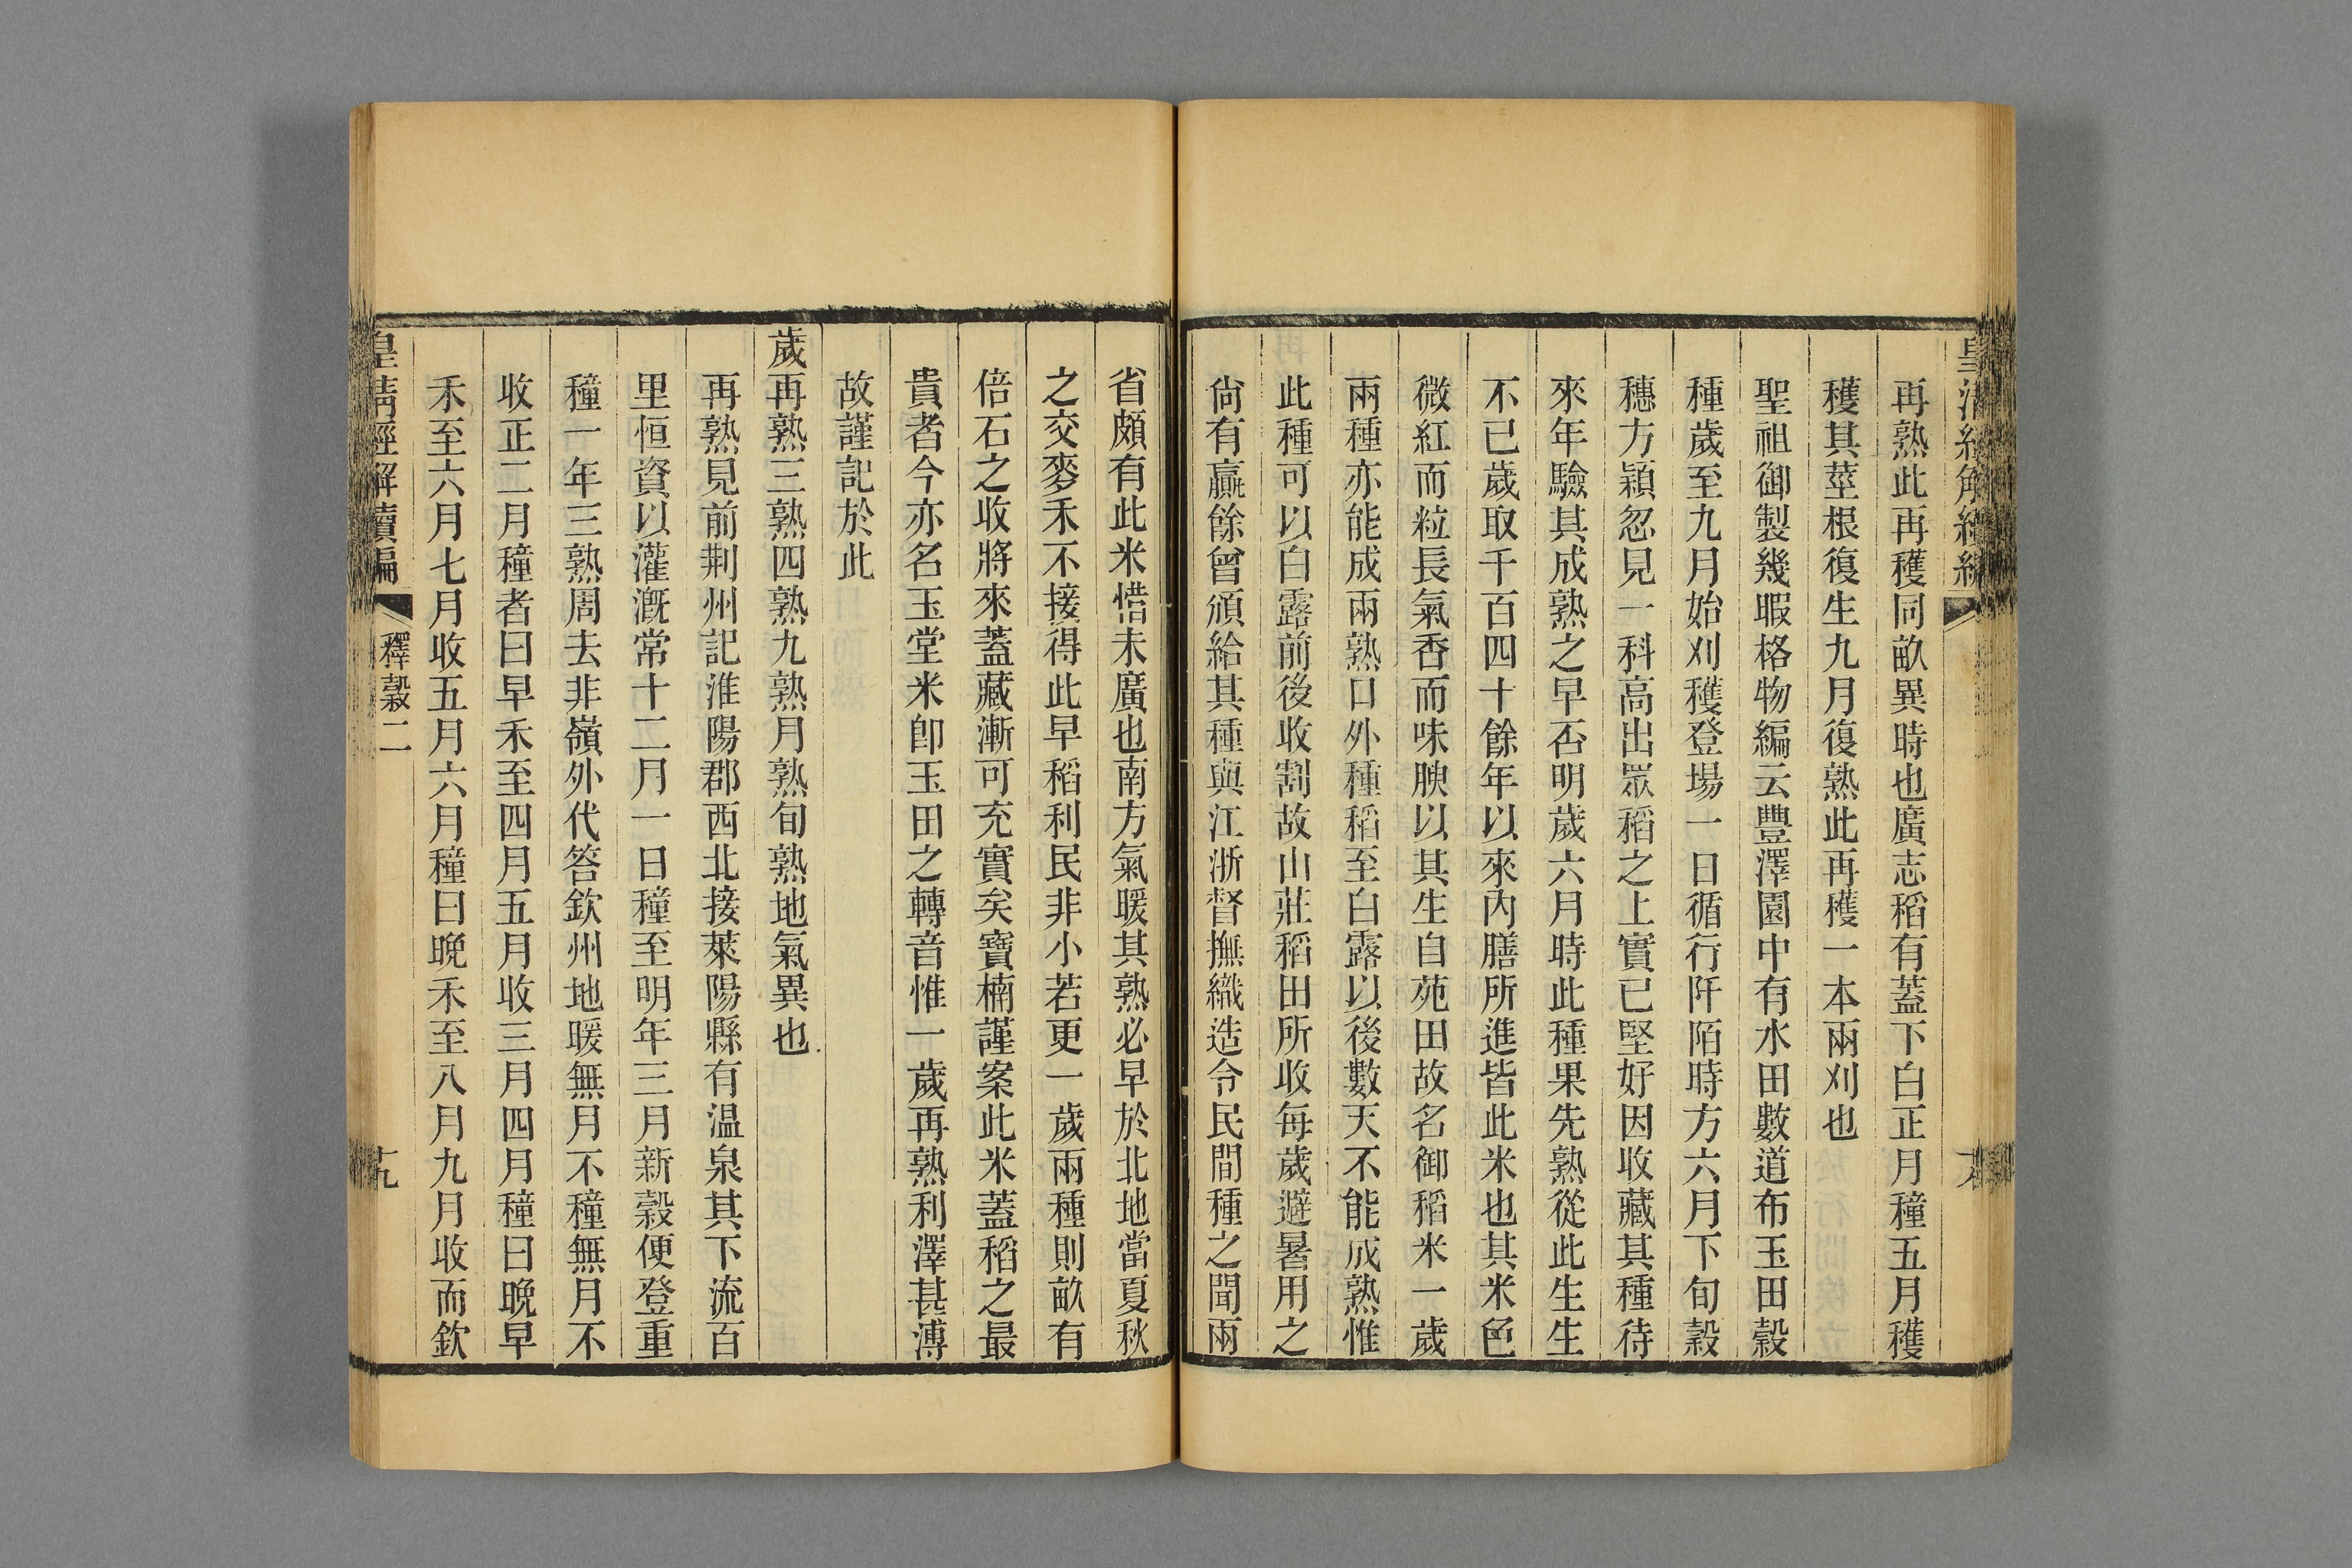 再熟此再穫同畝異時也廣志稻有蓋下白正月穜五月穫
穫其莖根復生九月復熟此再穫一本兩刈也
聖祖御製幾暇格物編云豐澤園中有水田數道布玉田穀
種歲至九月始刈穫登場一日循行阡陌時方六月下旬穀
穗方穎忽見一科高出眾稻之上實已堅好因收藏其種待
來年驗其成熟之早否明歲六月時此種果先熟從此生生
不已歲取千百四十餘年以來內膳所進皆此米也其米色
微紅而粒長氣香而味腴以其生自苑田故名御稻米一歲
兩種亦能成兩熟口外種稻至白露以後數天不能成熟惟
此種可以白露前後收割故山莊稻田所收每歲避暑用之
尙有贏餘曾頒給其種與江浙督撫織造令民間種之聞兩
省頗有此米惜未廣也南方氣暖其熟必早於北地當夏秋
之交麥禾不接得此早稻利民非小若更一歲兩種則畝有
倍石之收將來蓋藏漸可充實矣寶楠謹案此米蓋稻之最
貴者今亦名玉堂米卽玉田之轉音惟一歲再熟利澤甚溥
故謹記於此
歲再熟三熟四熟九熟月熟旬熟地氣異也
再熟見前荆州記淮陽郡西北接萊陽縣有温泉其下流百
里恒資以灌漑常十二月一日穜至明年三月新穀便登重
穜一年三熟周去非嶺外代答欽州地暖無月不穜無月不
收正二月穜者曰早禾至四月五月收三月四月穜曰晚早
禾至六月七月收五月六月穜曰晚禾至八月九月收而欽
皇淸經解續編
釋穀二
十九